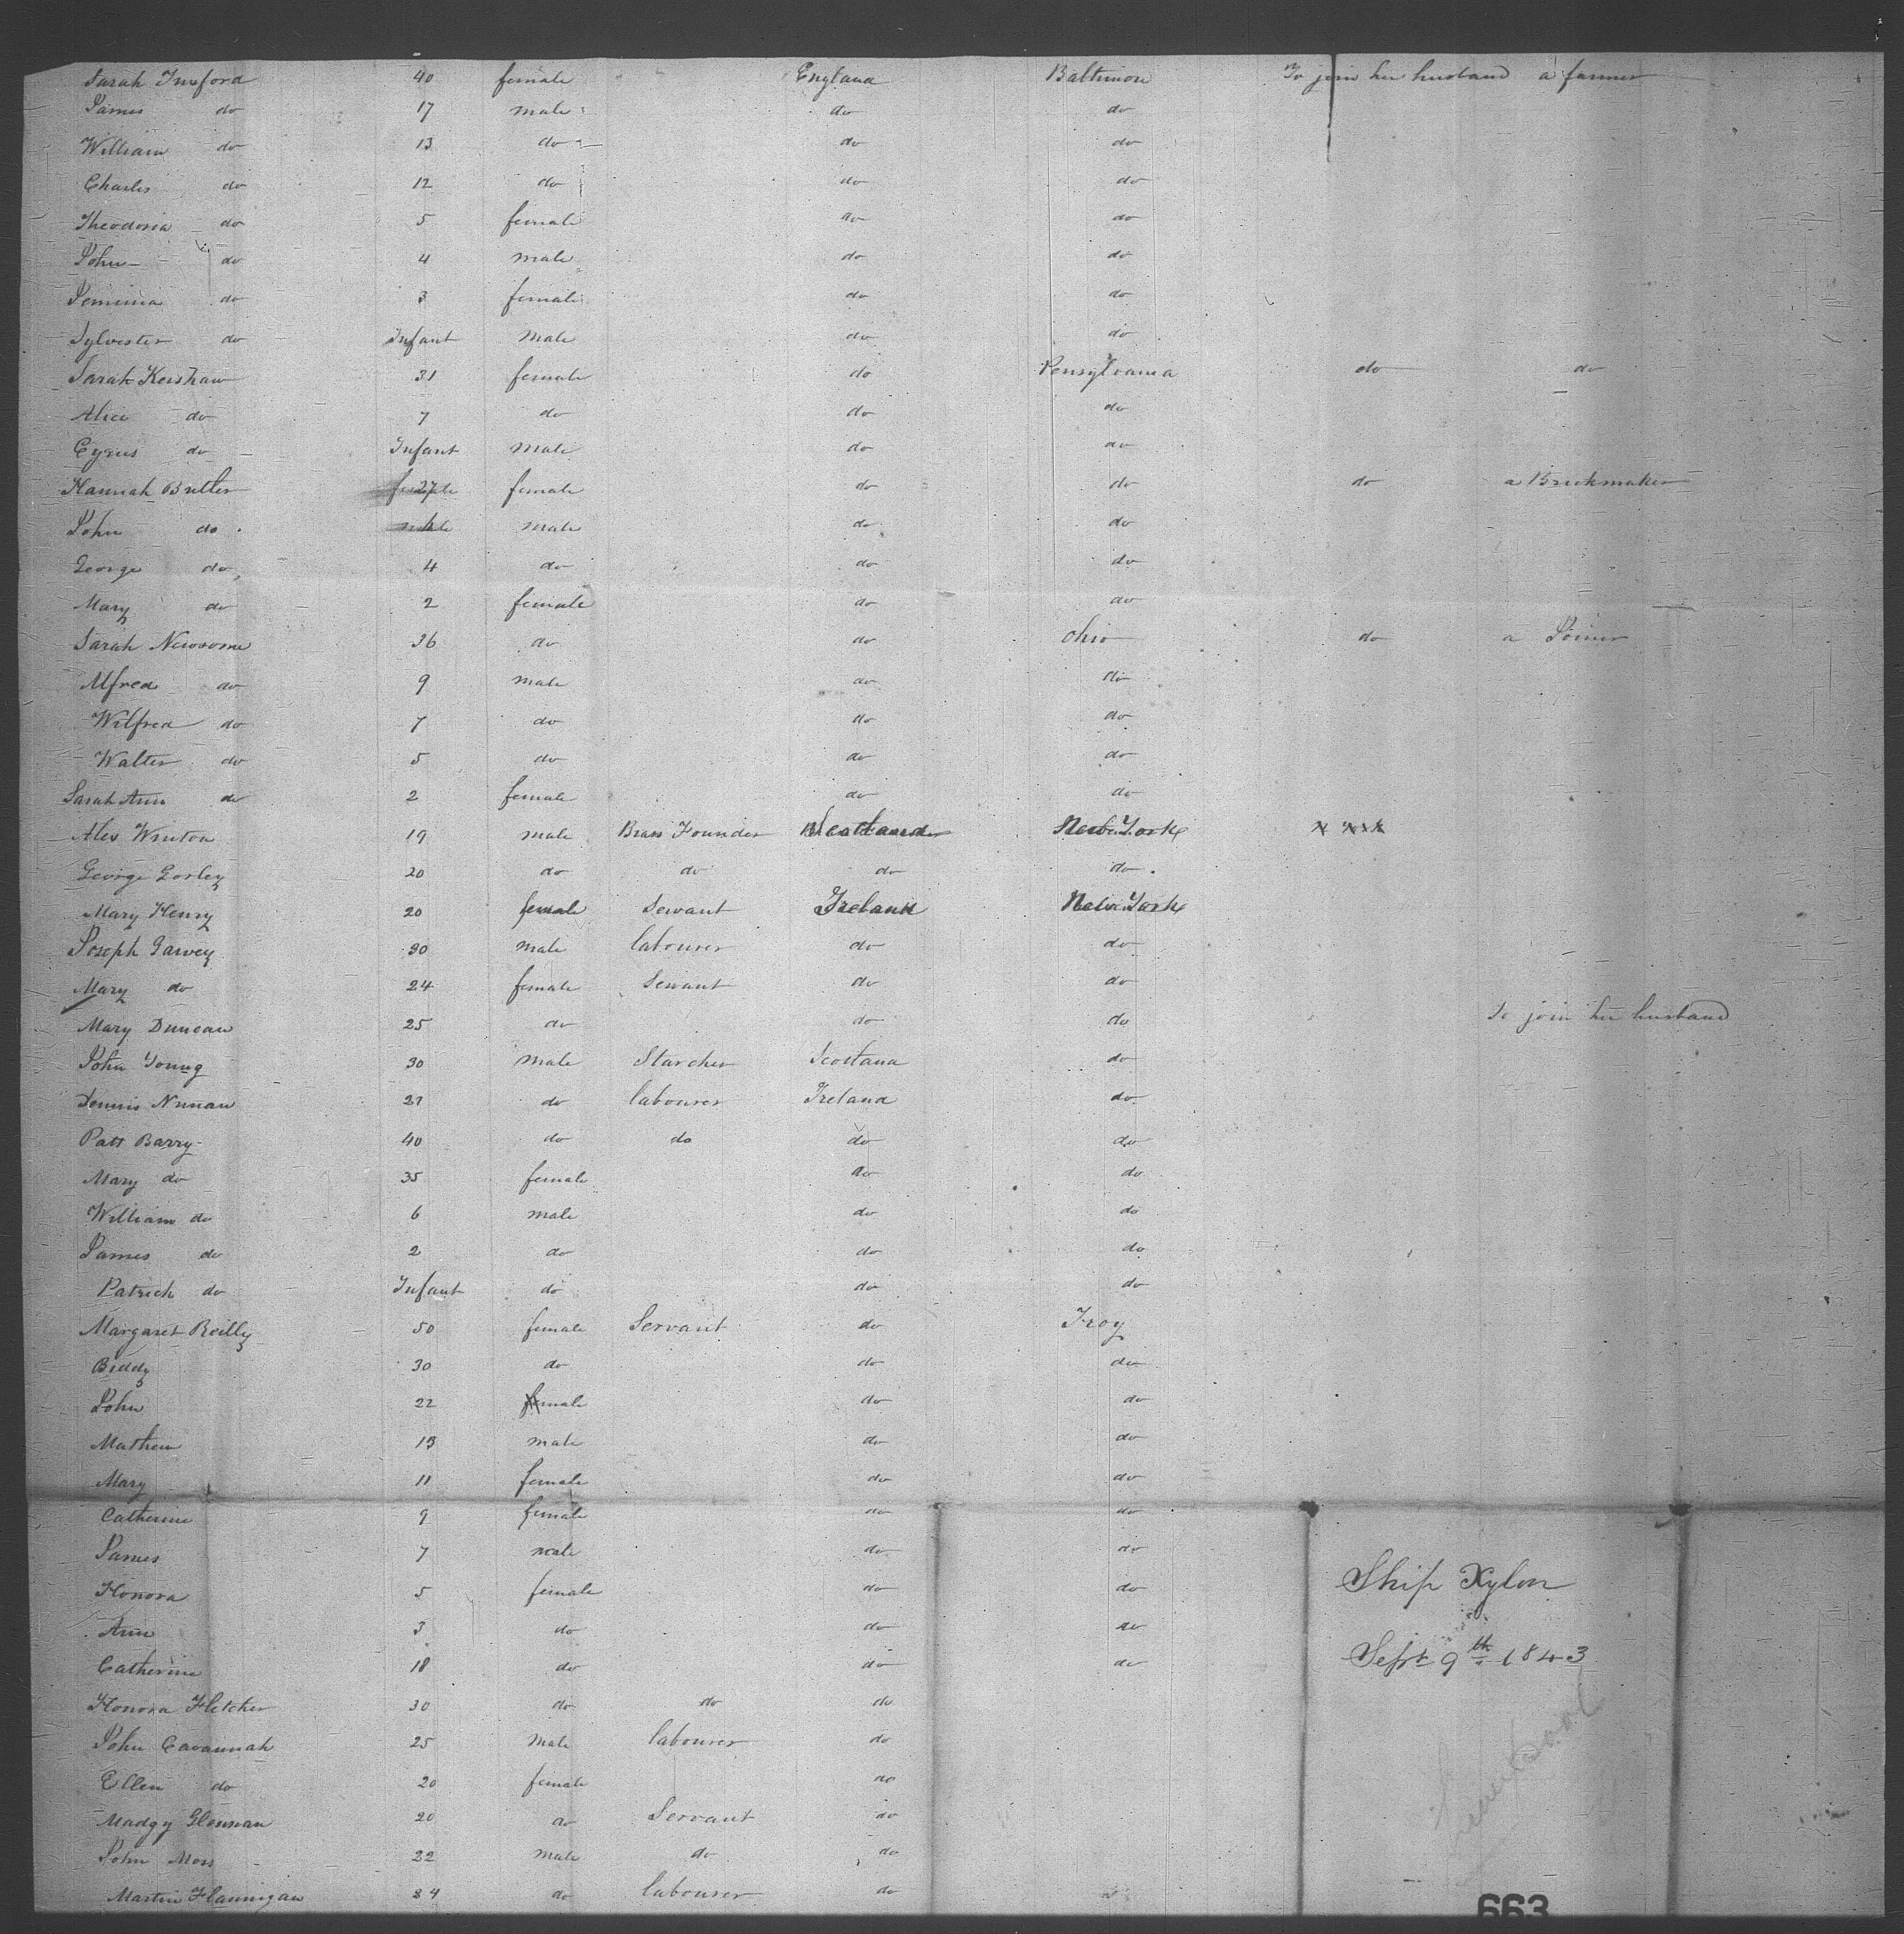 Sarah Tuxford 40 female England Baltimore To join her husband a farmer
James do 17 male do do
William do 13 do do do
Charles do 12 do do do
Theodosia do 5 female do do
John do 4 male do do
Jemima do 3 female do do
Sylvester do Infant Male do do
Sarah Kershaw 31 female do Pensylvania do do
Alice do 7 do do do
Cyrus do Infant Male do do
Hannah Butler 27 female do do do a Brickmaker
John do male do do
George do 4 do do do
Mary do 2 female do do
Sarah Newsome 36 do do Ohio do a Joiner
Alfred do 9 male do do
Wilfred do 7 do do do
Walter do 5 do do do
Sarah Ann do 2 female do do
Alex Wruton 19 male Brass Founder Scotland New York
George Gorley 20 do do do do
Mary Henry 20 female Servant Ireland New York
Joseph Garvey 30 male labourer do do
Mary do 24 female Servant do do
Mary Duncan 25 do do do To join her husband
John Young 30 male Starcher Scotland do
Dennis Nunan 27 do labourer Ireland do
Patt Barry 40 do do do do
Mary do 35 female do do
William do 6 male do do
James do 2 do do do
Patrick do Infant do do do
Margaret Reilly 50 female Servant do Troy
Biddy 30 do do do
John 22 male do do
Mathew 13 male do do
Mary 11 female do do
Catherine 9 female do do
James 7 male do do
Honora 5 female do do
Ann 3 do do do
Catherine 18 do do do
Honora Fletcher 30 do do do
John Cavannah 25 Male labourer do
Ellen do 20 female do
Madgy Glennan 20 do Servant do
John Moss 22 male do do
Martin Flannigan 24 do labourer do
Ship Xylon
Sept 9th 1843
Liverpool
663